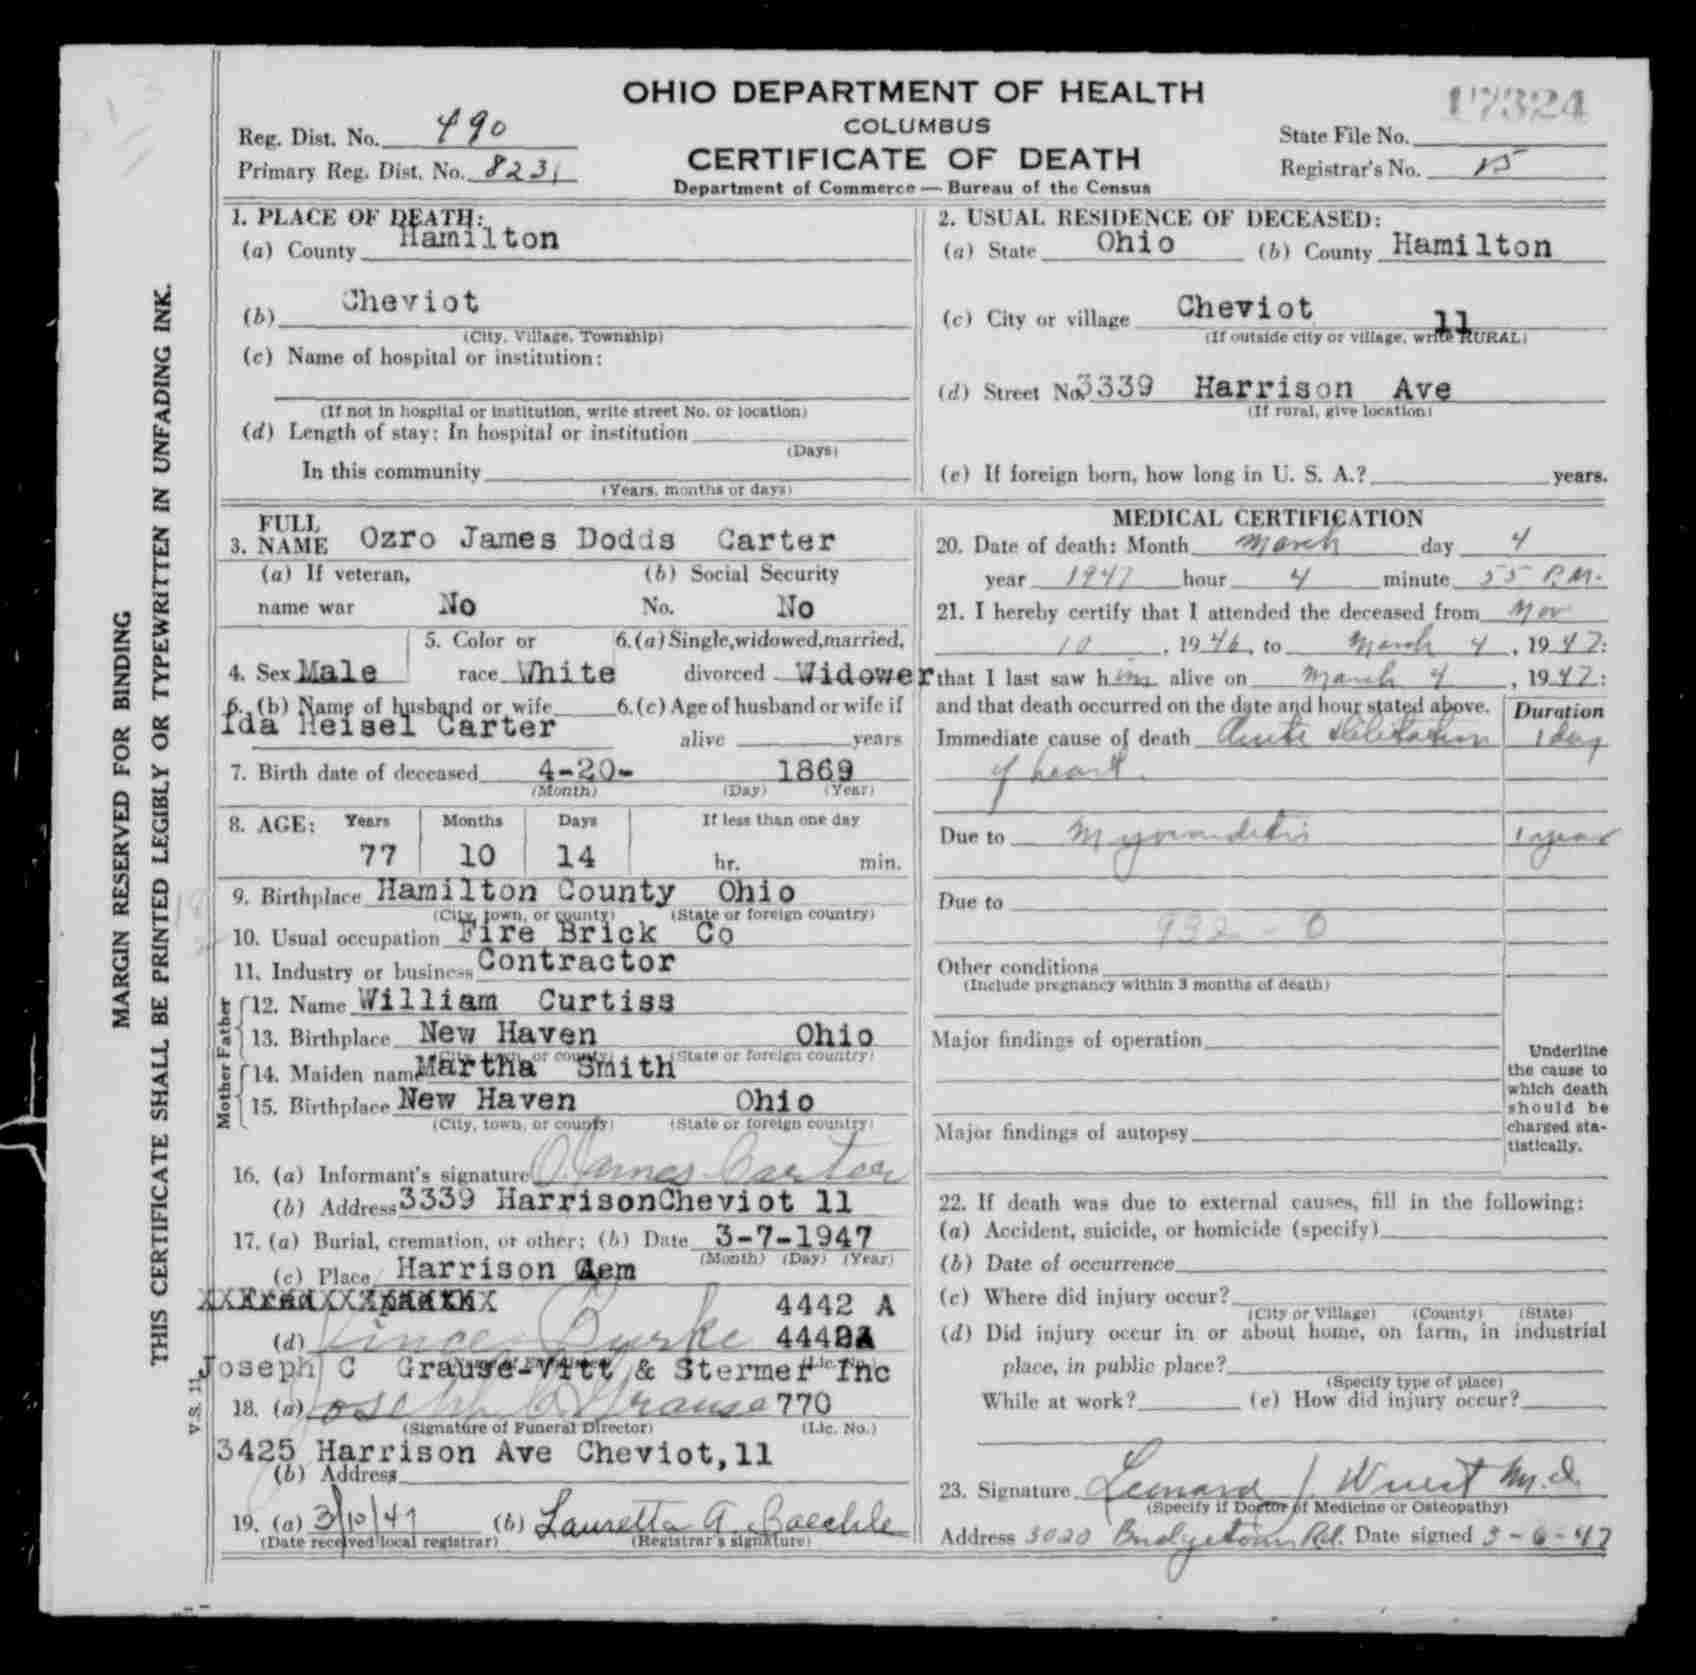 OHIO DEPARTMENT OF HEALTH
COLUMBUS
CERTIFICATE OF DEATH
Department of Commerce — Bureau of the Census
Reg. Dist. No. 490
Primary Reg. Dist. No. 8231
17324
State File No.
Registrar's No. 15
MARGIN RESERVED FOR BINDING
THIS CERTIFICATE SHALL BE PRINTED LEGIBLY OR TYPEWRITTEN IN UNFADING INK.
V.S. 11
1. PLACE OF DEATH:
(a) County Hamilton
(b) Cheviot
(City, Village, Township)
(c) Name of hospital or institution:
(If not in hospital or institution, write street No. or location)
(d) Length of stay: In hospital or institution
(Days)
In this community
(Years, months or days)
2. USUAL RESIDENCE OF DECEASED:
(a) State Ohio (b) County Hamilton
(c) City or village Cheviot 11
(If outside city or village, write RURAL)
(d) Street No. 3339 Harrison Ave
(If rural, give location)
(e) If foreign born, how long in U. S. A.? years.
3. FULL NAME Ozro James Dodds Carter
(a) If veteran, name war No
(b) Social Security No. No
4. Sex Male
5. Color or race White
6. (a) Single, widowed, married, divorced Widower
6. (b) Name of husband or wife
Ida Heisel Carter
6. (c) Age of husband or wife if alive years
7. Birth date of deceased 4-20- 1869
(Month) (Day) (Year)
8. AGE: Years Months Days If less than one day
77 10 14 hr. min.
9. Birthplace Hamilton County Ohio
(City, town, or county) (State or foreign country)
10. Usual occupation Fire Brick Co
11. Industry or business Contractor
Father
12. Name William Curtiss
13. Birthplace New Haven Ohio
(City, town, or county) (State or foreign country)
Mother
14. Maiden name Martha Smith
15. Birthplace New Haven Ohio
(City, town, or county) (State or foreign country)
16. (a) Informant's signature O. James Carter
(b) Address 3339 Harrison Cheviot 11
17. (a) Burial, cremation, or other; (b) Date 3-7-1947
(Month) (Day) (Year)
(c) Place Harrison Cem
4442 A
(d) Vince Burke
(Lic. No.)
Joseph C Grause-Vitt & Stermer Inc
18. (a) Joseph C. Grause 770
(Signature of Funeral Director) (Lic. No.)
3425 Harrison Ave Cheviot,11
(b) Address
19. (a) 3/10/47 (b) Lauretta A. Baechle
(Date received local registrar) (Registrar's signature)
MEDICAL CERTIFICATION
20. Date of death: Month March day 4
year 1947 hour 4 minute 55 P.M.
21. I hereby certify that I attended the deceased from Nov
10, 1946, to March 4, 1947:
that I last saw him alive on March 4, 1947:
and that death occurred on the date and hour stated above.
Duration
Immediate cause of death Acute dilitation 1 day
of heart.
Due to Myocarditis 1 year
Due to
932 - 0
Other conditions
(Include pregnancy within 3 months of death)
Major findings of operation
Major findings of autopsy
Underline
the cause to
which death
should be
charged sta-
tistically.
22. If death was due to external causes, fill in the following:
(a) Accident, suicide, or homicide (specify)
(b) Date of occurrence
(c) Where did injury occur?
(City or Village) (County) (State)
(d) Did injury occur in or about home, on farm, in industrial
place, in public place?
(Specify type of place)
While at work? (e) How did injury occur?
23. Signature Leonard J. Wuest M.D.
(Specify if Doctor of Medicine or Osteopathy)
Address 3020 Bridgetown Rd. Date signed 3-6-47